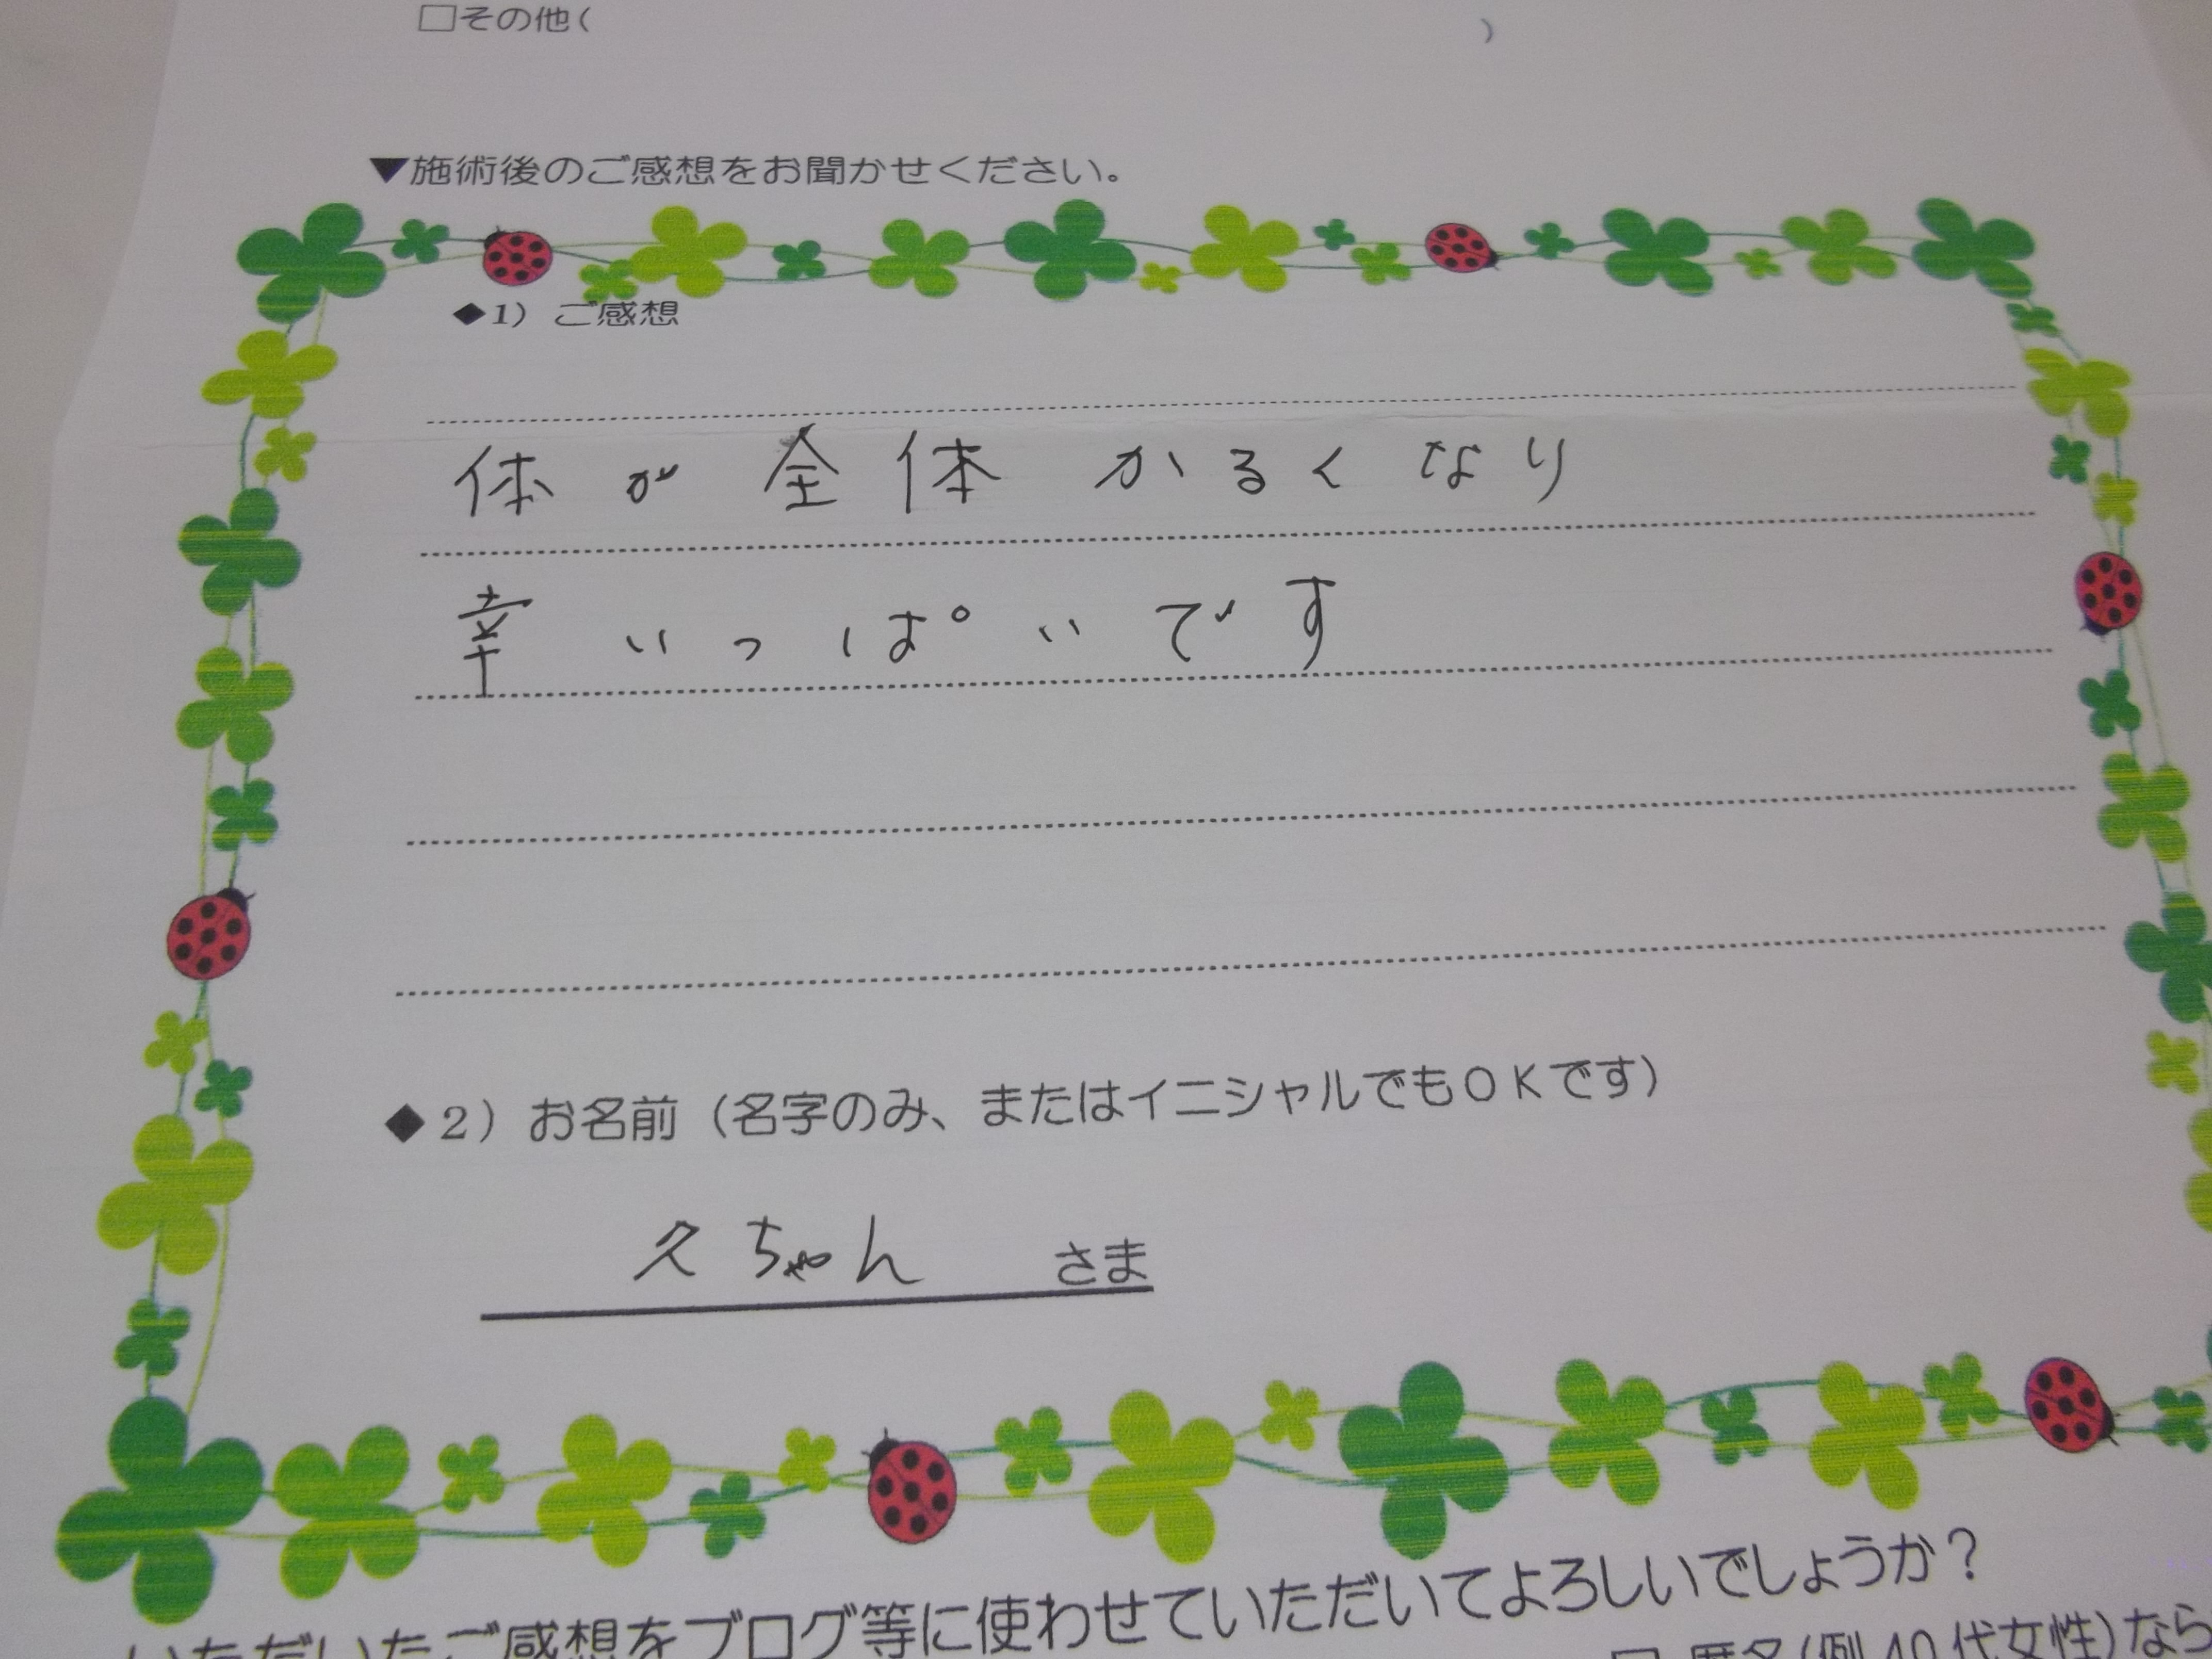 □その他( )
▼施術後のご感想をお聞かせください。
◆1) ご感想
体が全体かるくなり
幸いっぱいです
◆2) お名前 (名字のみ、またはイニシャルでもOKです)
久ちゃん さま
いただいたご感想をブログ等に使わせていただいてよろしいでしょうか?
□ 匿名(例 40代女性)なら